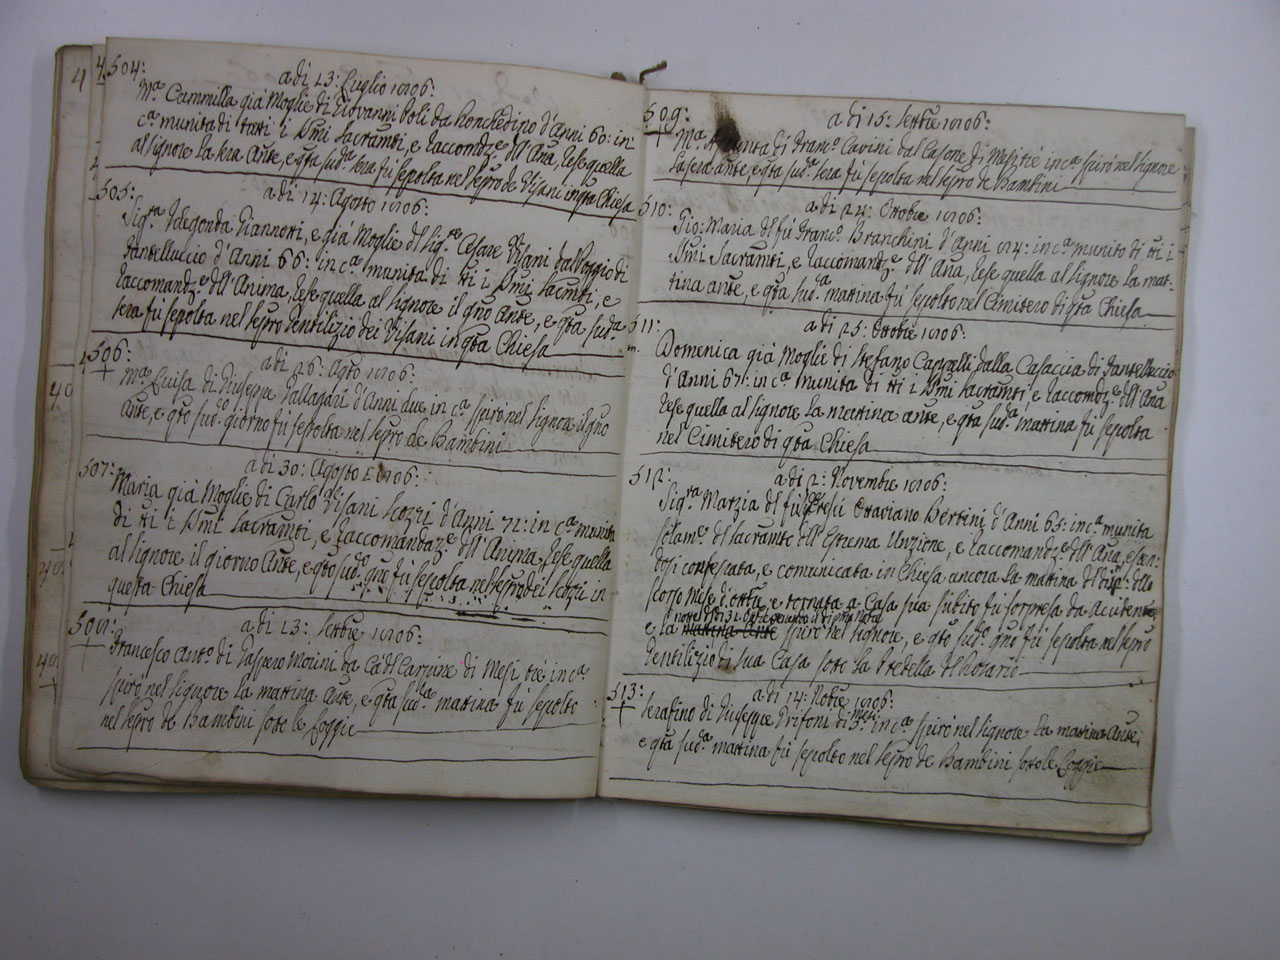 504:
a di 23: Luglio 1806:
Mª Cammilla già Moglie di Giovanni Boli da Ronchedizo d'Anni 60: in
cª munita di tutti i SSmi Sacramti, e raccomdzᵉ dll' Ana, Rese quella
al Signore la sera Ante, e qta sudª sera fù sepolta nel Sepro de Visani in qta Chiesa
505:
a di 14: Agosto 1806:
Sigʳᵃ Ildegonda Giannotti, e già Moglie dl Sigʳᵉ Cesare Visani dal Poggio di
Santelluccio d'Anni 66: in cª munita di tti i SSmi Sacmti, e
raccomandzᵉ dll' Anima, Rese quella al Signore il gno Ante, e qta sudª
sera fù sepolta nel Sepro Gentilizio dei Visani in qta Chiesa
506:
a di 26: Agto 1806:
Mª Luisa di Giuseppe Tallagani d'Anni due in cª spirò nel Signore il gno
Ante, e qto sudº giorno fù sepolta nel Sepro de Bambini
507:
a di 30: Agosto 1806:
Maria già Moglie di Carlo Visani Scozzi d'Anni 72: in cª munita
di tti i SSmi Sacramti, e raccomandazᵉ dll' Anima, Rese quella
al Signore il giorno Ante, e qto sudº gno fù sepolta nel Sepro dei Scozzi in
questa Chiesa
508:
a di 23: Settbre 1806:
Francesco Antº di Gaspero Morini da Cà dl Carpine di Mesi tre in cª
spirò nel Signore la mattina Ante, e qta sudª mattina fù sepolto
nel Sepro de Bambini sotto le Loggie
509:
a di 15: Settbre 1806:
Mª di Francº Cavini dal Casone di Mesi tre in cª spirò nel Signore
la sera ante, e qta sudª sera fù sepolta nel Sepro de Bambini
510:
a di 24: Ottobre 1806:
Gio: Maria dl fù Francº Branchini d'Anni 84: in cª munito di tti i
SSmi Sacramti, e raccomandzᵉ dll' Ana, Rese quella al Signore la mat-
tina ante, e qta sudª mattina fù sepolto nel Cimitero di qta Chiesa
511:
a di 25: Ottobre 1806:
Domenica già Moglie di Stefano Cappelli dalla Casaccia di Santelluccio
d'Anni 67: in cª munita di tti i SSmi Sacramti, e raccomdzᵉ dll' Ana
Rese quella al Signore la mattina ante, e qta sudª mattina fù sepolta
nel Cimitero di qta Chiesa
512:
a di 2: Novembre 1806:
Sigʳᵃ Marzia dl fù Ottaviano Bertini d'Anni 65: in cª munita
solamᵉ dl Sacramto dll' Estrema Unzione, e raccomandzᵉ dll' Ana, essen-
dosi confessata, e comunicata in Chiesa ancora la mattina dllo
scorso Mese d'Ottbre, e tornata a Casa sua subito fù sorpresa da Accidente,
e la notte dl dì 31 mattina Ante spirò nel Signore, e qto sudº gno fù sepolta nel Sepro
Gentilizio di sua Casa sotto la Predella dl Rosario
513:
a di 14: Nobre 1806:
Serafino di Giuseppe Grifoni di Mesi 3: in cª spirò nel Signore la mattina Ante,
e qta sudª mattina fù sepolto nel Sepro de Bambini sotto le Loggie